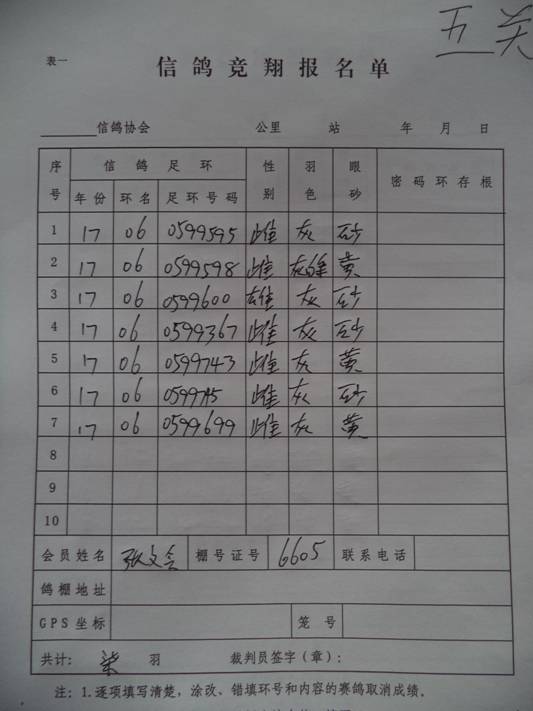 五关
表一
信鸽竞翔报名单
信鸽协会 公里 站 年 月 日
序号 信鸽足环 性别 羽色 眼砂 密码环存根
年份 环名 足环号码
1 17 06 0599595 雌 灰 砂
2 17 06 0599598 雌 灰 黄
3 17 06 0599600 雄 灰 砂
4 17 06 0599367 雌 灰 砂
5 17 06 0599743 雌 灰 黄
6 17 06 雌 灰 砂
7 17 06 0599699 雌 灰 黄
8
9
10
会员姓名 张文会 棚号证号 6605 联系电话
鸽棚地址
GPS坐标 笼号
共计: 柒 羽 裁判员签字(章):
注:1.逐项填写清楚,涂改、错填环号和内容的赛鸽取消成绩。